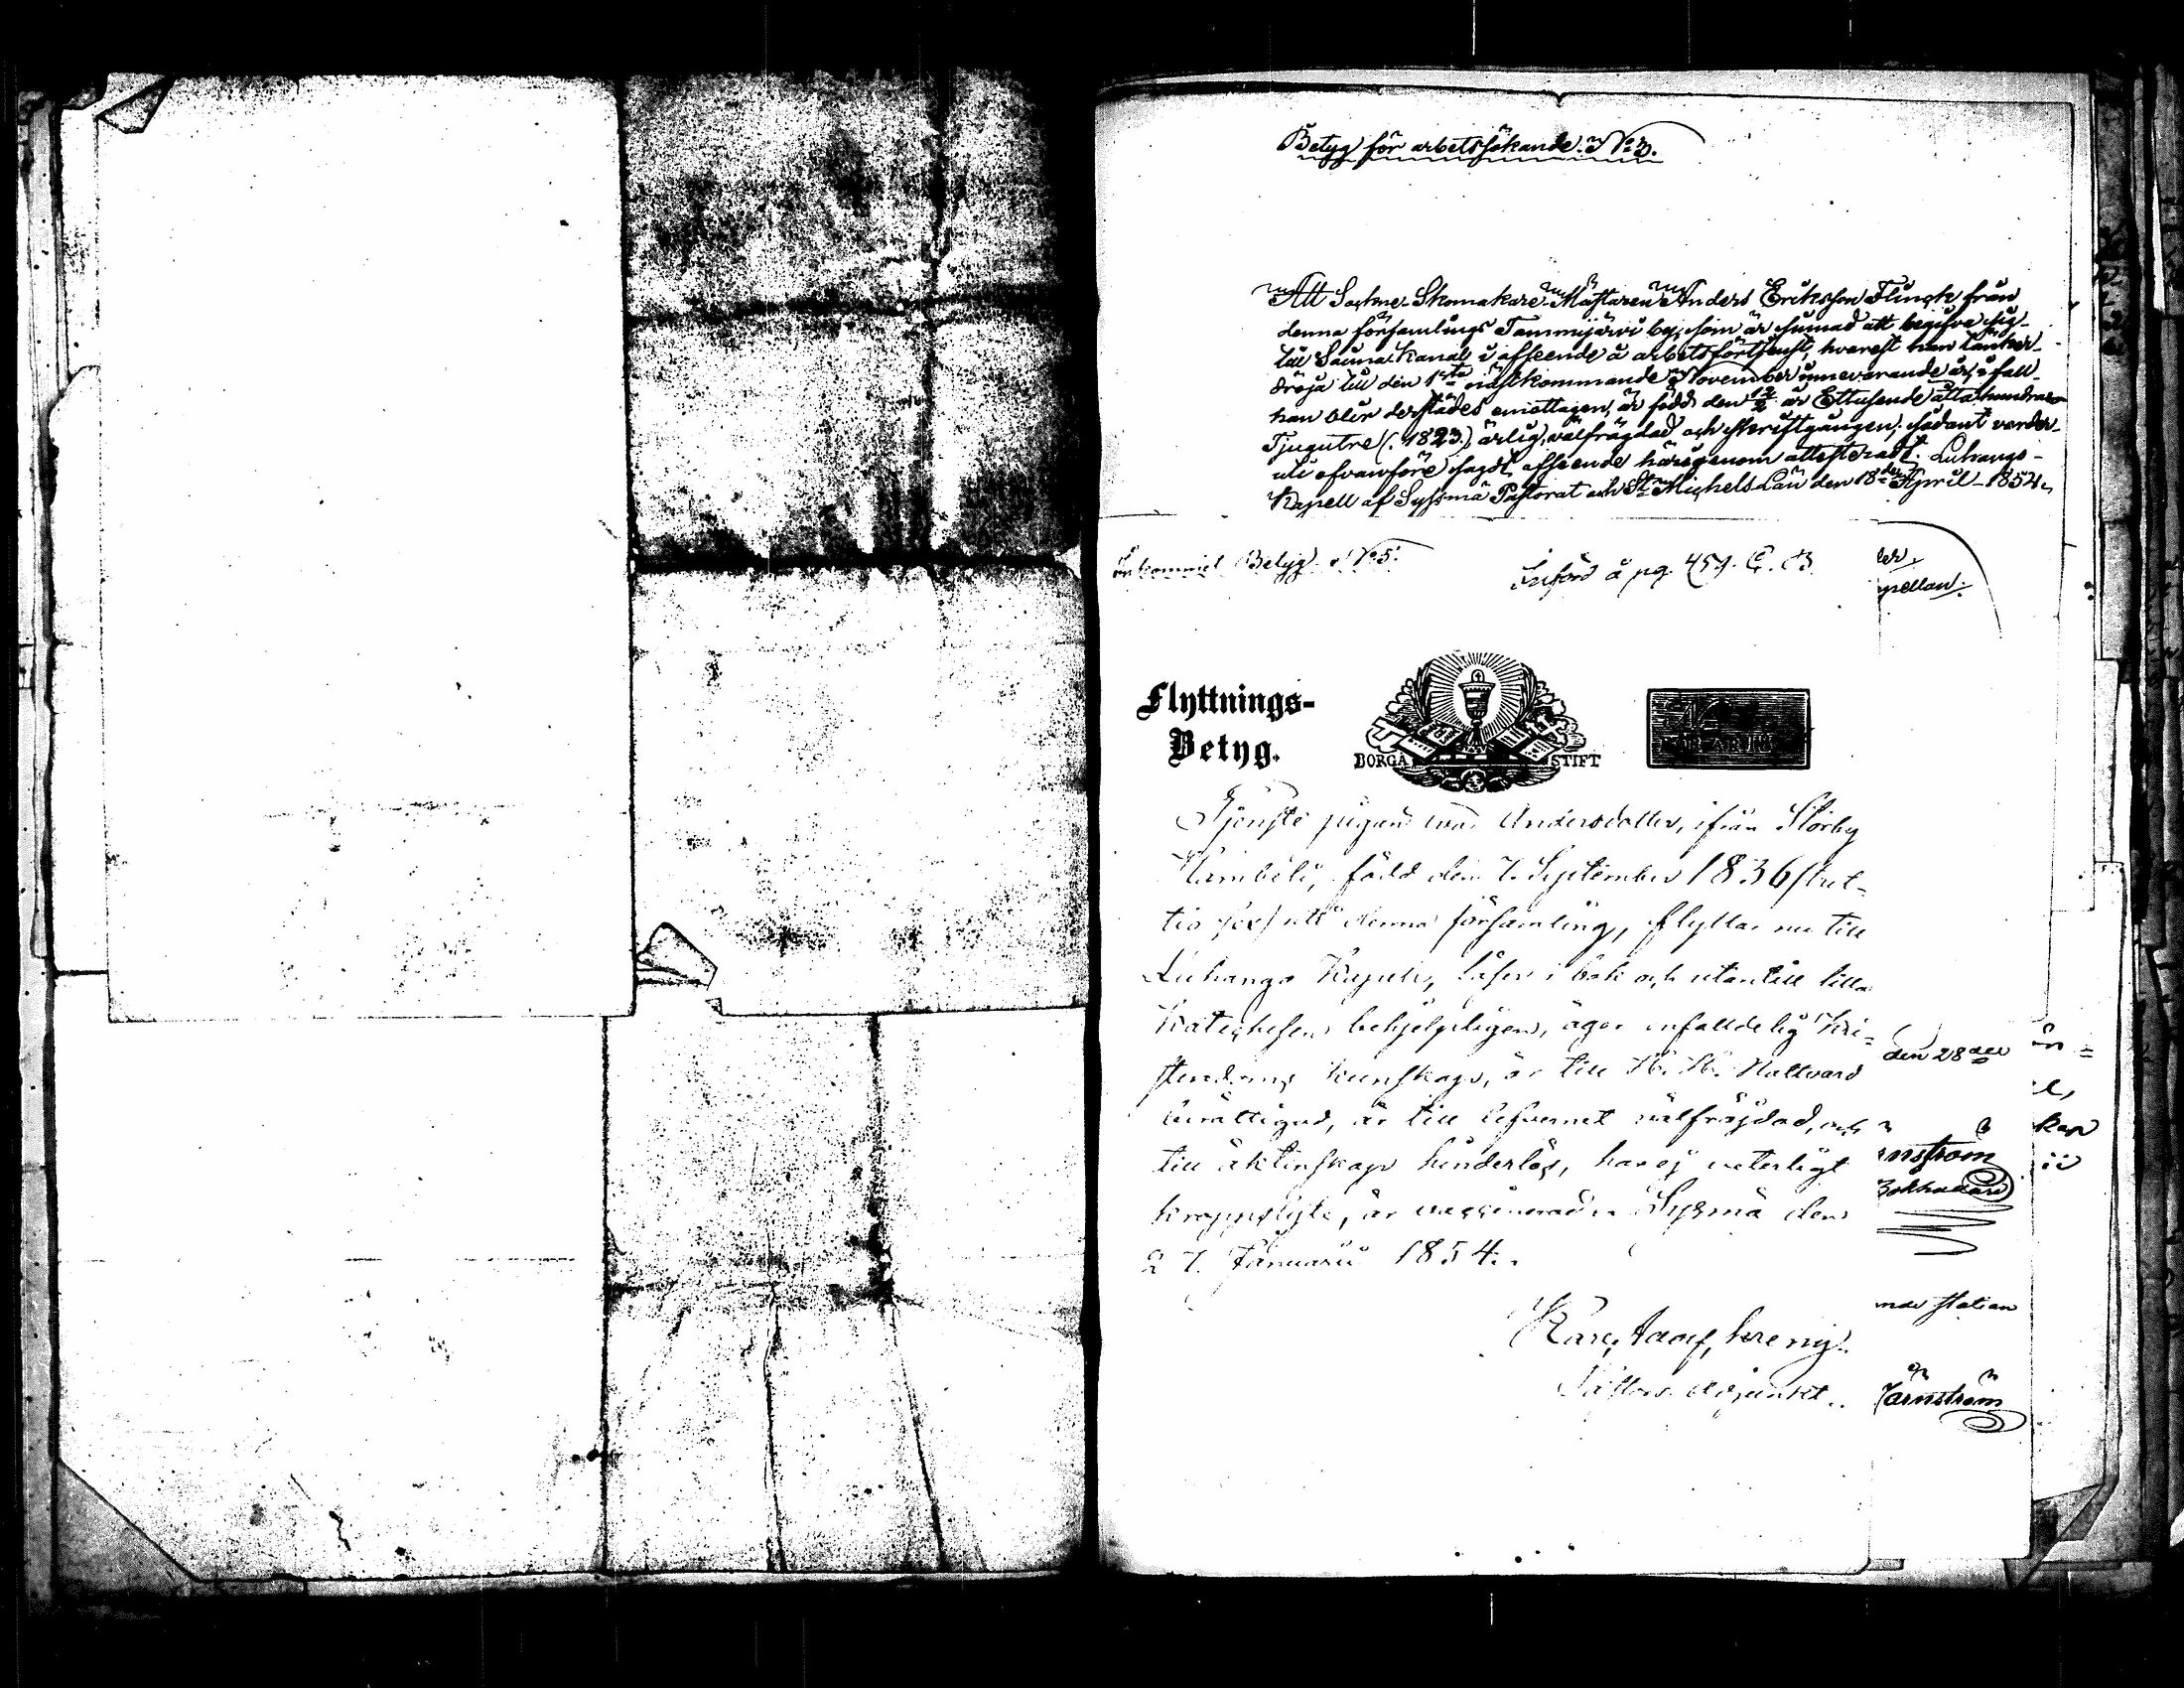 Betyg för arbetssökande. N:o 3.
Att Sockne-Skomakare-Mästaren Anders Eriksson Flinck från
denna församlings Tammijärvi by, som är sinnad att begifva sig
till Saima Kanal i afseende å arbetsförtjenst, hvarest han tänker
dröja till den 1:sta nästkommande November innevarande år, ifall
han blir derstädes emottagen, är född den 12/2 år Ettusende åttahundra
Tjugutre (1823.) ärlig, välfrägdad och skriftgången; sådant varder
uti ofvanföre sagdt afseende härigenom attesteradt. Luhango
Kapell af Sysmä Pastorat och St Michels Län den 18:de April 1854.
Ankommet Betyg N:o 5.
Införd å pg. 459. C. B
ler
pellan.
Flyttnings-
Betyg.
BORGÅ STIFT
Tjenste pigan Eva Andersdotter, ifrån Storby
född den 7. September 1836 /tret-
tio sex/ uti denna församling, flyttar nu till
Luhango Kapell, läser i bok och utantill lilla
Katechesen behjelpligen, äger enfaldelig Kri-
stendoms kunskap, är till H. H. Nattvard
berättigad, är till lefvernet välfräjdad, och
till äktenskap hinderlös, har ej veterligt
kroppslyte, är vaccinerad. Sysmä den
27. Januarii 1854.
Pastors Adjunkt.
den 28:de
kap
nström
Bokhållare
nde station
Järnström